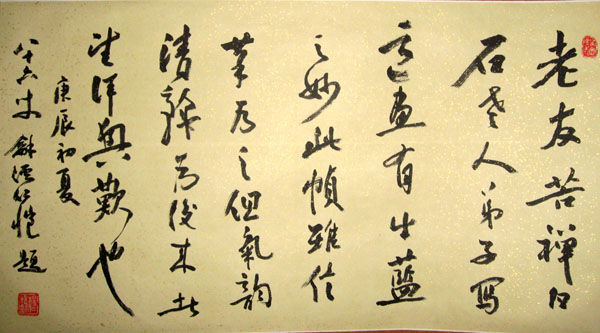 老友苦禪白
石老人弟子寫
意畫有出藍
之妙此幀雖信
筆為之但氣韻
清為後來者
望洋興歎也
庚辰初夏
八十六叟龢溪仁愷題